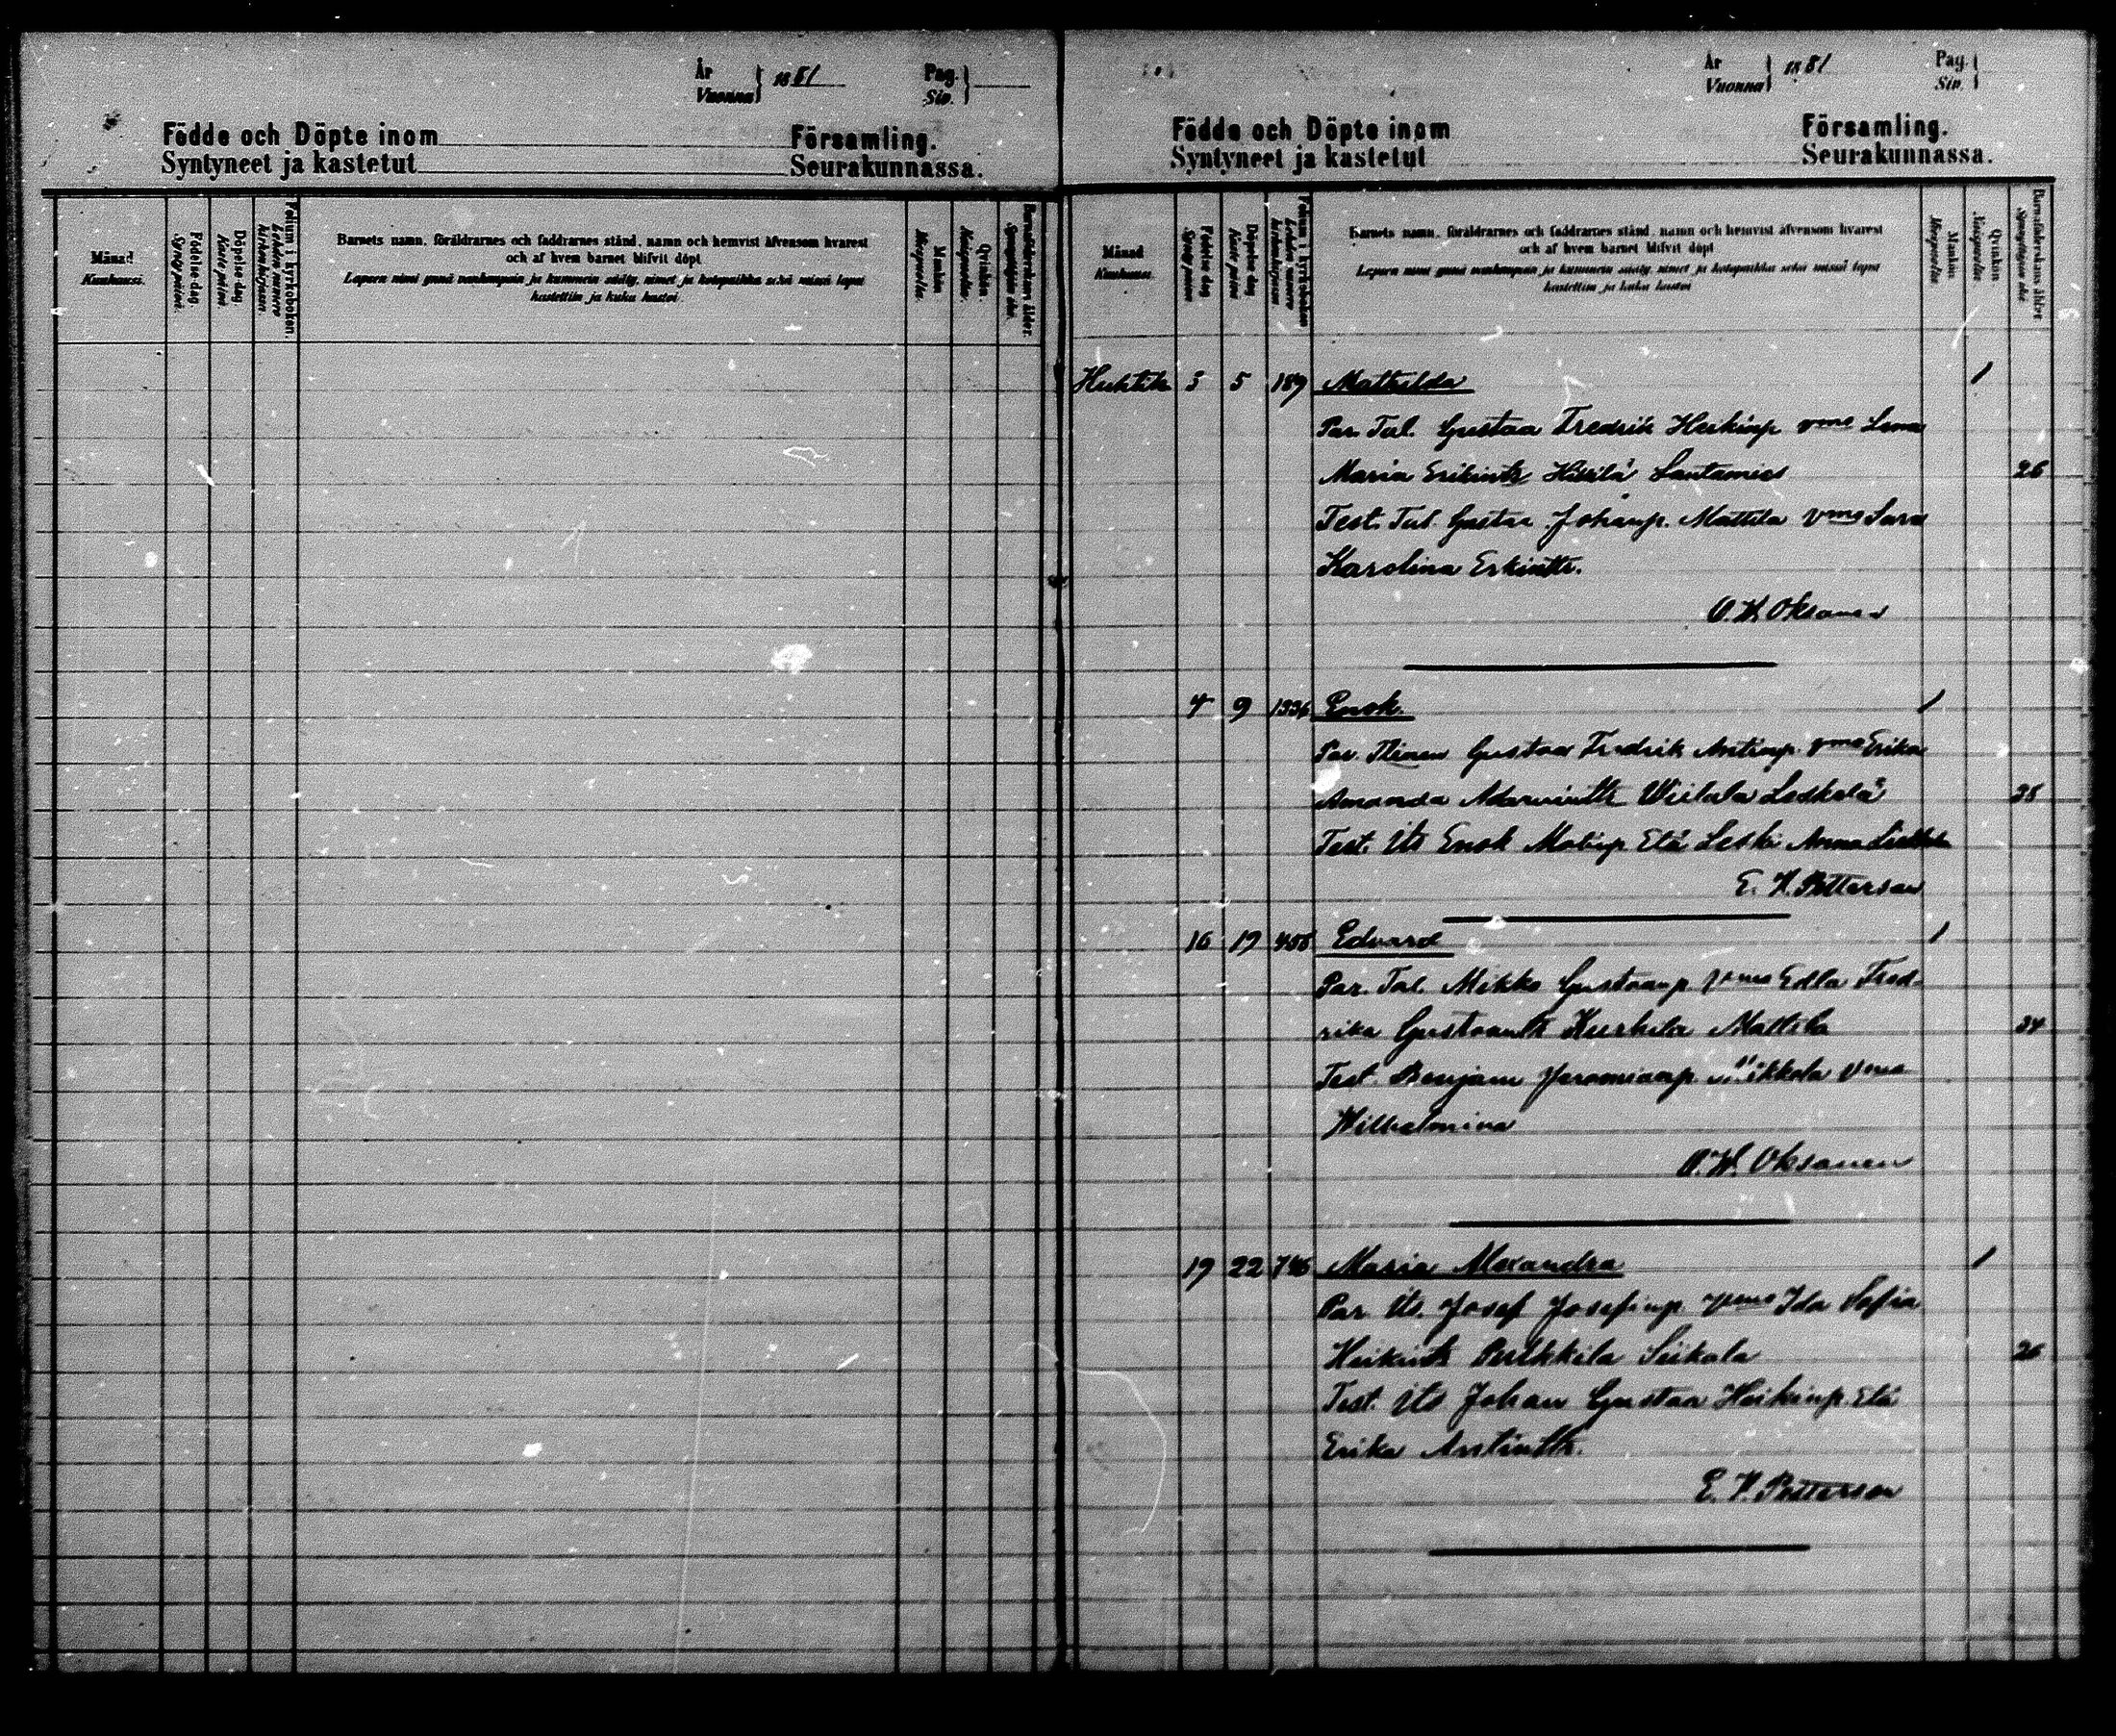 År
Vuonna } 1881
Pag.
Siv. }
Födde och Döpte inom Församling.
Syntyneet ja kastetut Seurakunnassa.
Månad
Kuukausi.
Födelse-dag.
Synty päivä.
Döpelse-dag.
Kaste päivä.
Folium i kyrkoboken.
Lehden numero kirkonkirjassa.
Barnets namn, föräldrarnes och faddrarnes stånd, namn och hemvist äfvensom hvarest
och af hvem barnet blifvit döpt
Lapsen nimi ynnä vanhempain ja kummein sääty, nimet ja kotopaikka sekä missä lapsi
kastettiin ja kuka kastoi.
Mankön
Miespuolia.
Qvinkön.
Naispuolia.
Barnaföderskans ålder.
Synnyttäjän ikä.
År
Vuonna } 1881
Pag.
Siv. }
Födde och Döpte inom Församling.
Syntyneet ja kastetut Seurakunnassa.
Månad
Kuukausi.
Födelse dag
Synty päivä
Döpelse dag
Kaste päivä
Folium i kyrkoboken
Lehden numero kirkonkirjassa
Barnets namn, föräldrarnes och faddrarnes stånd, namn och hemvist äfvensom hvarest
och af hvem barnet blifvit döpt
Lapsen nimi ynnä vanhempain ja kummein sääty, nimet ja kotopaikka sekä missä lapsi
kastettiin ja kuka kastoi
Mankön
Miespuolia
Qvinkön
Naispuolia
Barnaföderskans ålder
Synnyttäjän ikä
Huhtik 3 5 189 Mathilda /
Par. Tal. Gustaa Fredrik Heikinp vmo Lena
Maria Erikintr Santamies 26
Test. Tal. Gustaa Johanp. Mattila vmo Sara
Karolina Erkintr.
O. W. Oksanen
4 9 1336 Enok. /
Par. Gustaa Fredrik Antinp. vmo Erika
Amanda 38
Test. Its Enok Matinp Etä Leski Anna
E. W. Petterson
16 19 458 Edvard /
Par. Tal. Mikko Gustaanp vmo Edla Fred-
rika Gustaantr Kurkela Mattila 34
Test. Benjam Jeremiaanp. Mikkola vmo
Wilhelmina
O. W. Oksanen
19 22 746 Maria Alexandra /
Par Its. Josef Josefinp. vmo Ida Sofia
Heikintr Seikola 26
Test. Its Johan Gustaa Heikinp. Etä
Erika Antintr.
E. W. Petterson